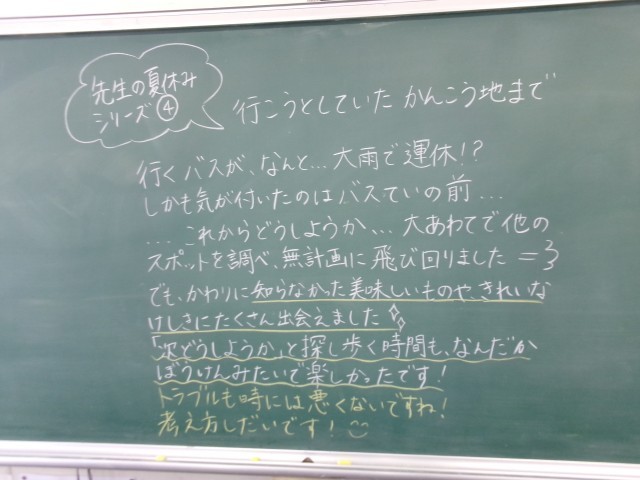 先生の夏休み
シリーズ④
行こうとしていた かんこう地まで
行くバスが、なんと…大雨で運休!?
しかも気が付いたのはバスていの前…
…これからどうしようか…大あわてで他の
スポットを調べ、無計画に飛び回りました
でも、かわりに知らなかった美味しいものや、きれいな
けしきにたくさん出会えました
「次どうしようか」と探し歩く時間も、なんだか
ぼうけんみたいで楽しかったです!
トラブルも時には悪くないですね!
考え方しだいです!